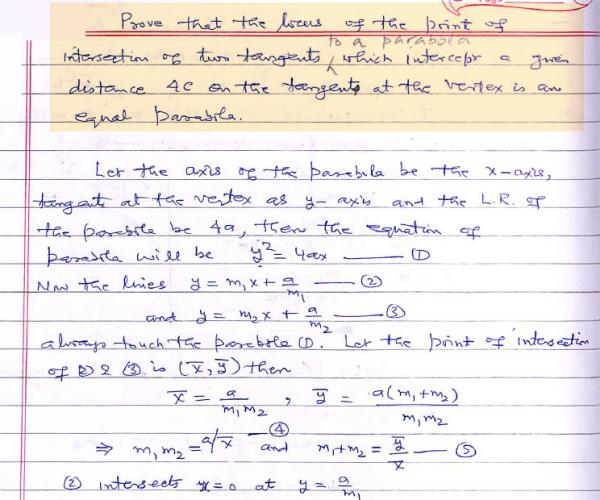 Prove that the locus of the point of
intersection of two tangents to a parabola which intercept a given
distance 4c on the tangents at the vertex is an
equal parabola.
Let the axis of the parabola be the x-axis,
tangent at the vertex as y-axis and the L.R. of
the parabola be 4a, then the equation of
parabola will be y² = 4ax —— ①
Now the lines y = m₁x + a/m₁ —— ②
and y = m₂x + a/m₂ —— ③
always touch the parabola ①. Let the point of intersection
of ② & ③ is (x̅, y̅) then
x̅ = a/m₁m₂ , y̅ = a(m₁+m₂)/m₁m₂
⇒ m₁m₂ = a/x̅ —④ and m₁+m₂ = y̅/x̅ —— ⑤
② intersects x=0 at y = a/m₁